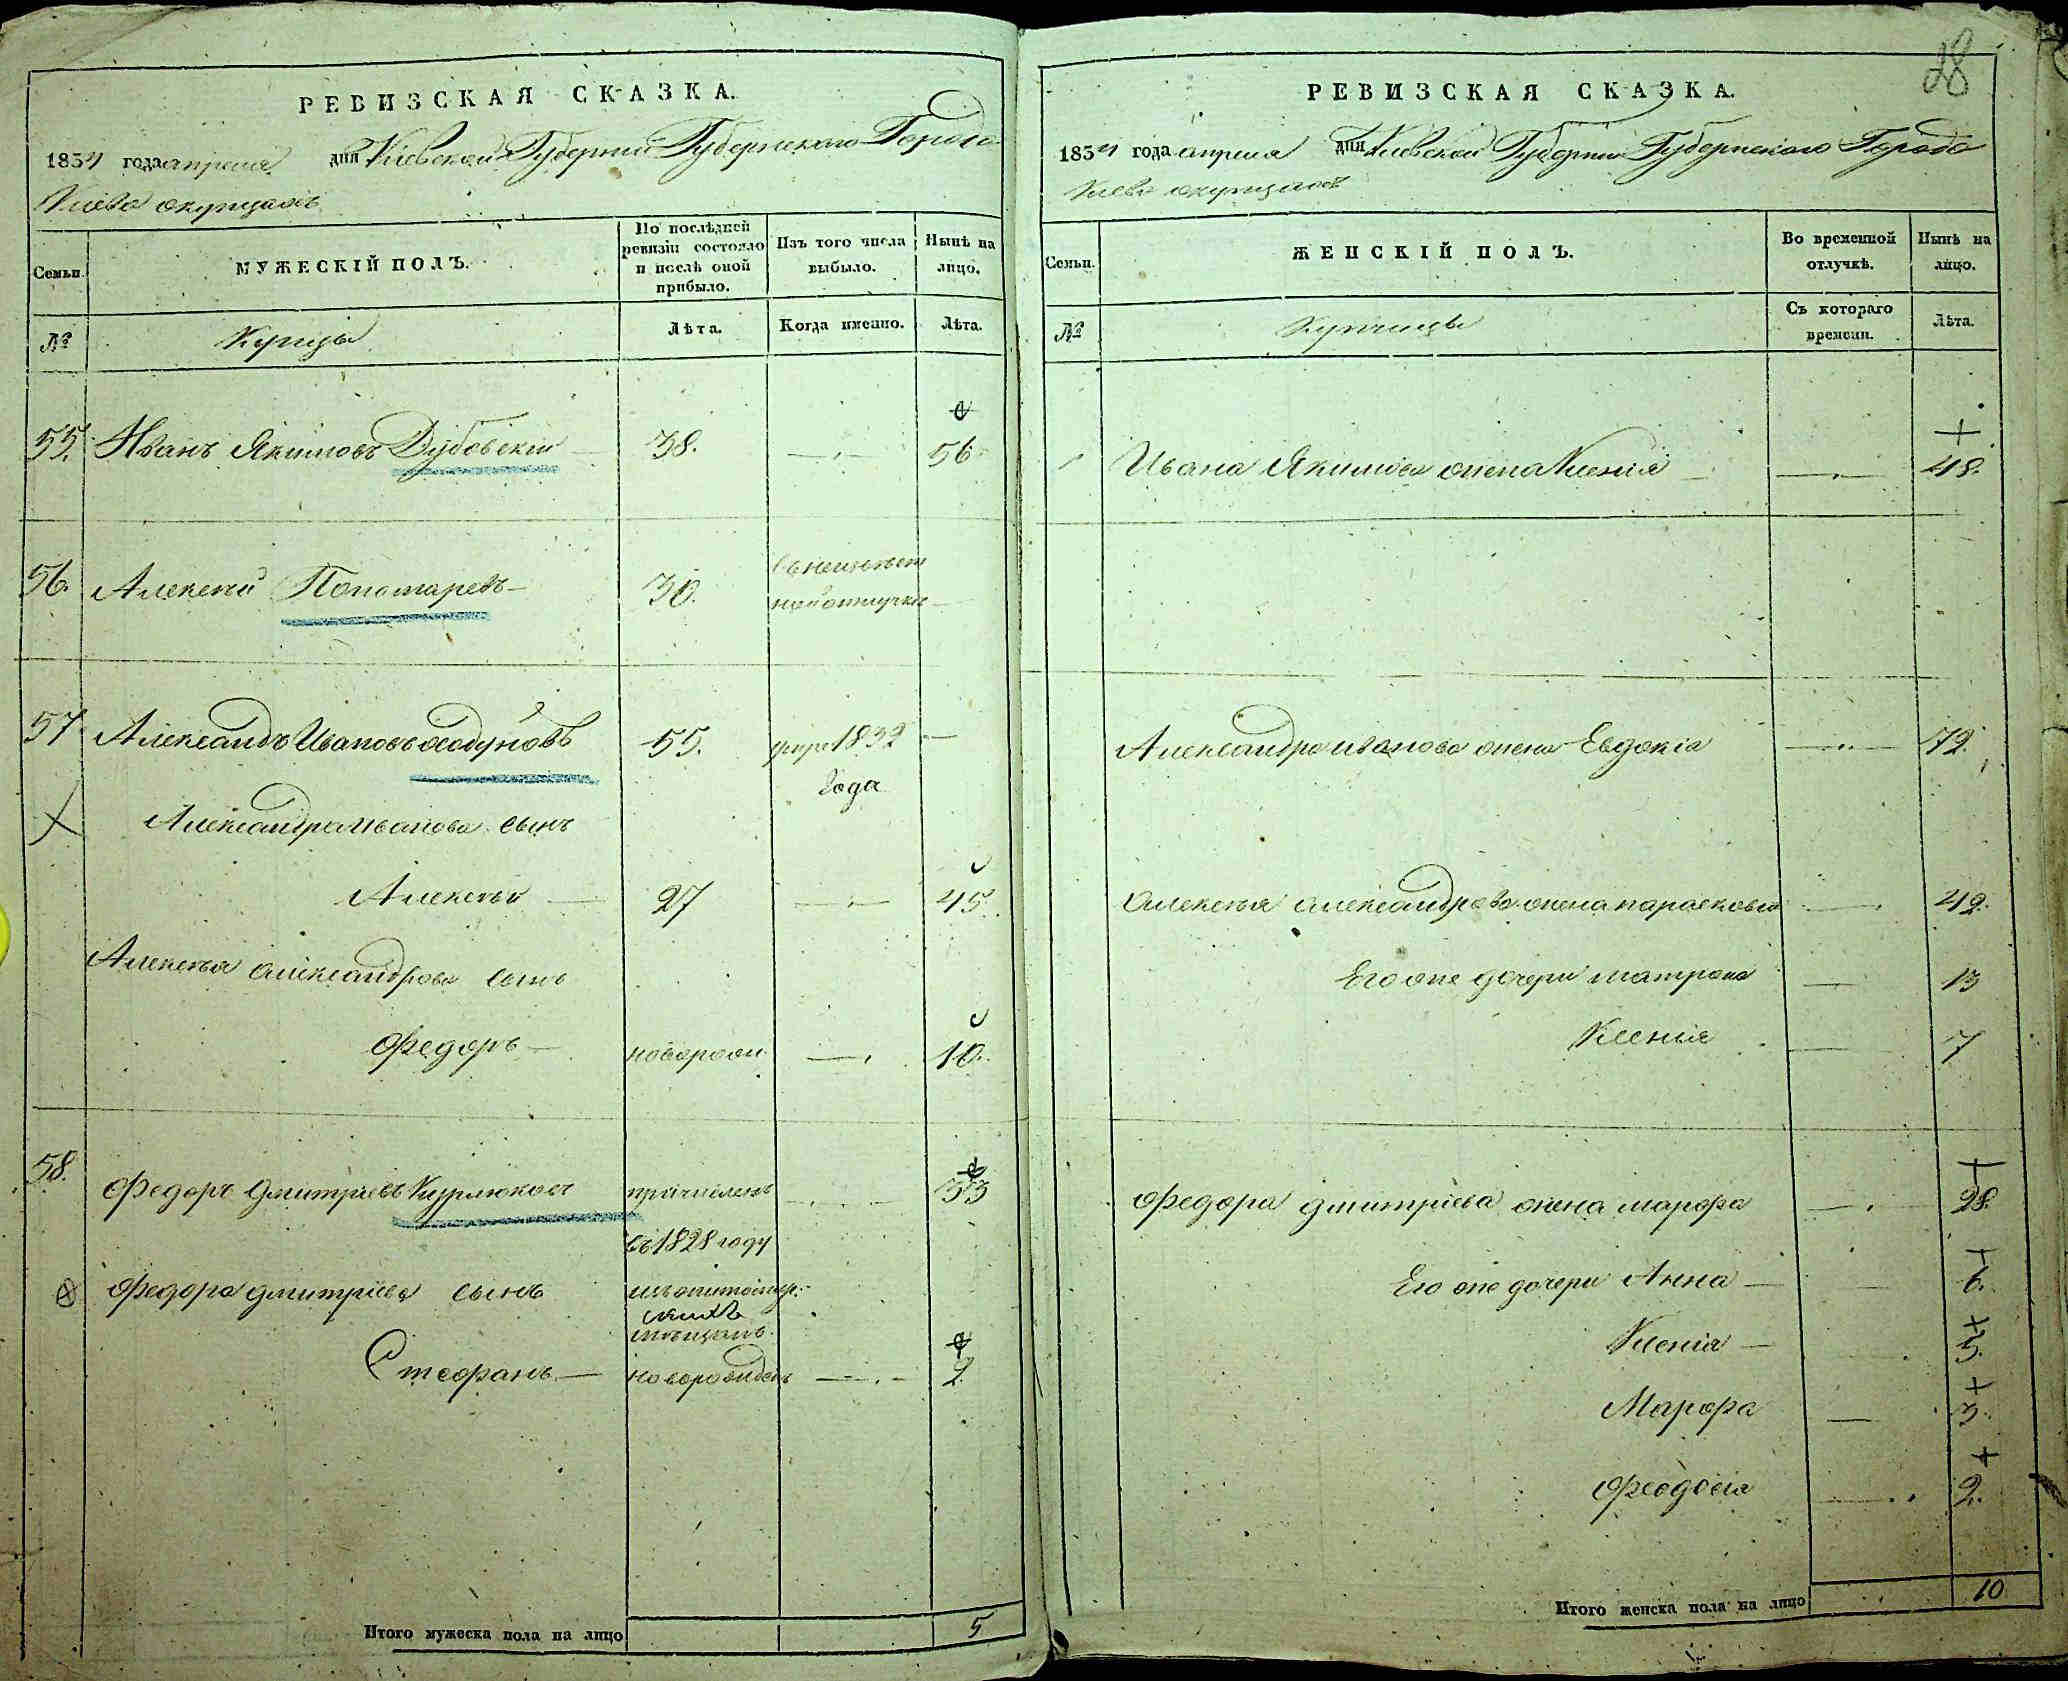 28
РЕВИЗСКАЯ СКАЗКА.
1834 года апреля дня Кіевской Губерніи Губернскаго Города
Кіева окупцахъ
Семьи.
МУЖЕСКІЙ ПОЛЪ.
По послѣдней ревизіи состояло и послѣ оной прибыло.
Изъ того числа выбыло.
Нынѣ на лицо.
№
Купцы
Лѣта.
Когда именно.
Лѣта.
55. Иванъ Якимовъ Дубовскій 38. 56
56. Алексей Пономаревъ 30. въ неизвест
ной отлучке
57 Александъ Ивановъ 55. 1832
года
Александра Иванова сынъ
Алексей 27 45.
Алексея Александрова сынъ
Федоръ новорож 10.
58. Федоръ Дмитріевъ причисленъ 33
съ 1828 году
Федора Дмитріева сынъ
мещанъ
Стефанъ новорожденъ 2
Итого мужеска пола на лицо 5
РЕВИЗСКАЯ СКАЗКА.
1834 года апреля дня Кіевской Губерніи Губернскаго Города
Кіева окупцахъ
Семьи.
ЖЕНСКІЙ ПОЛЪ.
Во временной отлучкѣ.
Нынѣ на лицо.
№
Купчихи
Съ котораго времени.
Лѣта.
Ивана Якимова жена Ксенія 48.
Александра Иванова жена Евдокія 72.
Алексея Александрова жена Парасковія 42.
Его же дочери Матрона 13
Ксенія 7
Федора Дмитріева жена Марфа 28.
Его же дочери Анна 6.
Ксенія 5.
Марфа 3.
Феодосія 2.
Итого женска пола на лицо 10